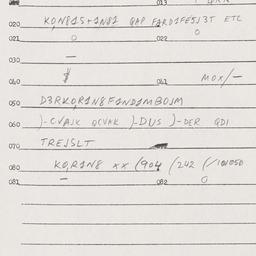 013
020 KQN81S+1N81 GAP FARD1FE5J3T ETC
021 0 022 0
030 —
040 041 MOX/—
050 D3RKQR1N8F1ND1MBOJM
060 )-CVAJK QCVAK )-DUS )-DER QDI
070 TREJSLT
080 KQR1N8 XX (904 /242
081 — 082 0